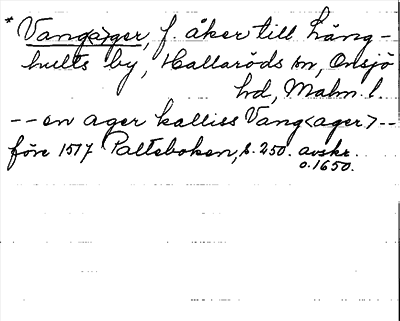 * Vang<s>ager, f. åker till Lång-
hults by, Hallaröds sn, Onsjö
hd, Malm. l.
-- en ager kalliss Vang<ager> --
före 1517 Palteboken, s. 250. avskr.
o. 1650.